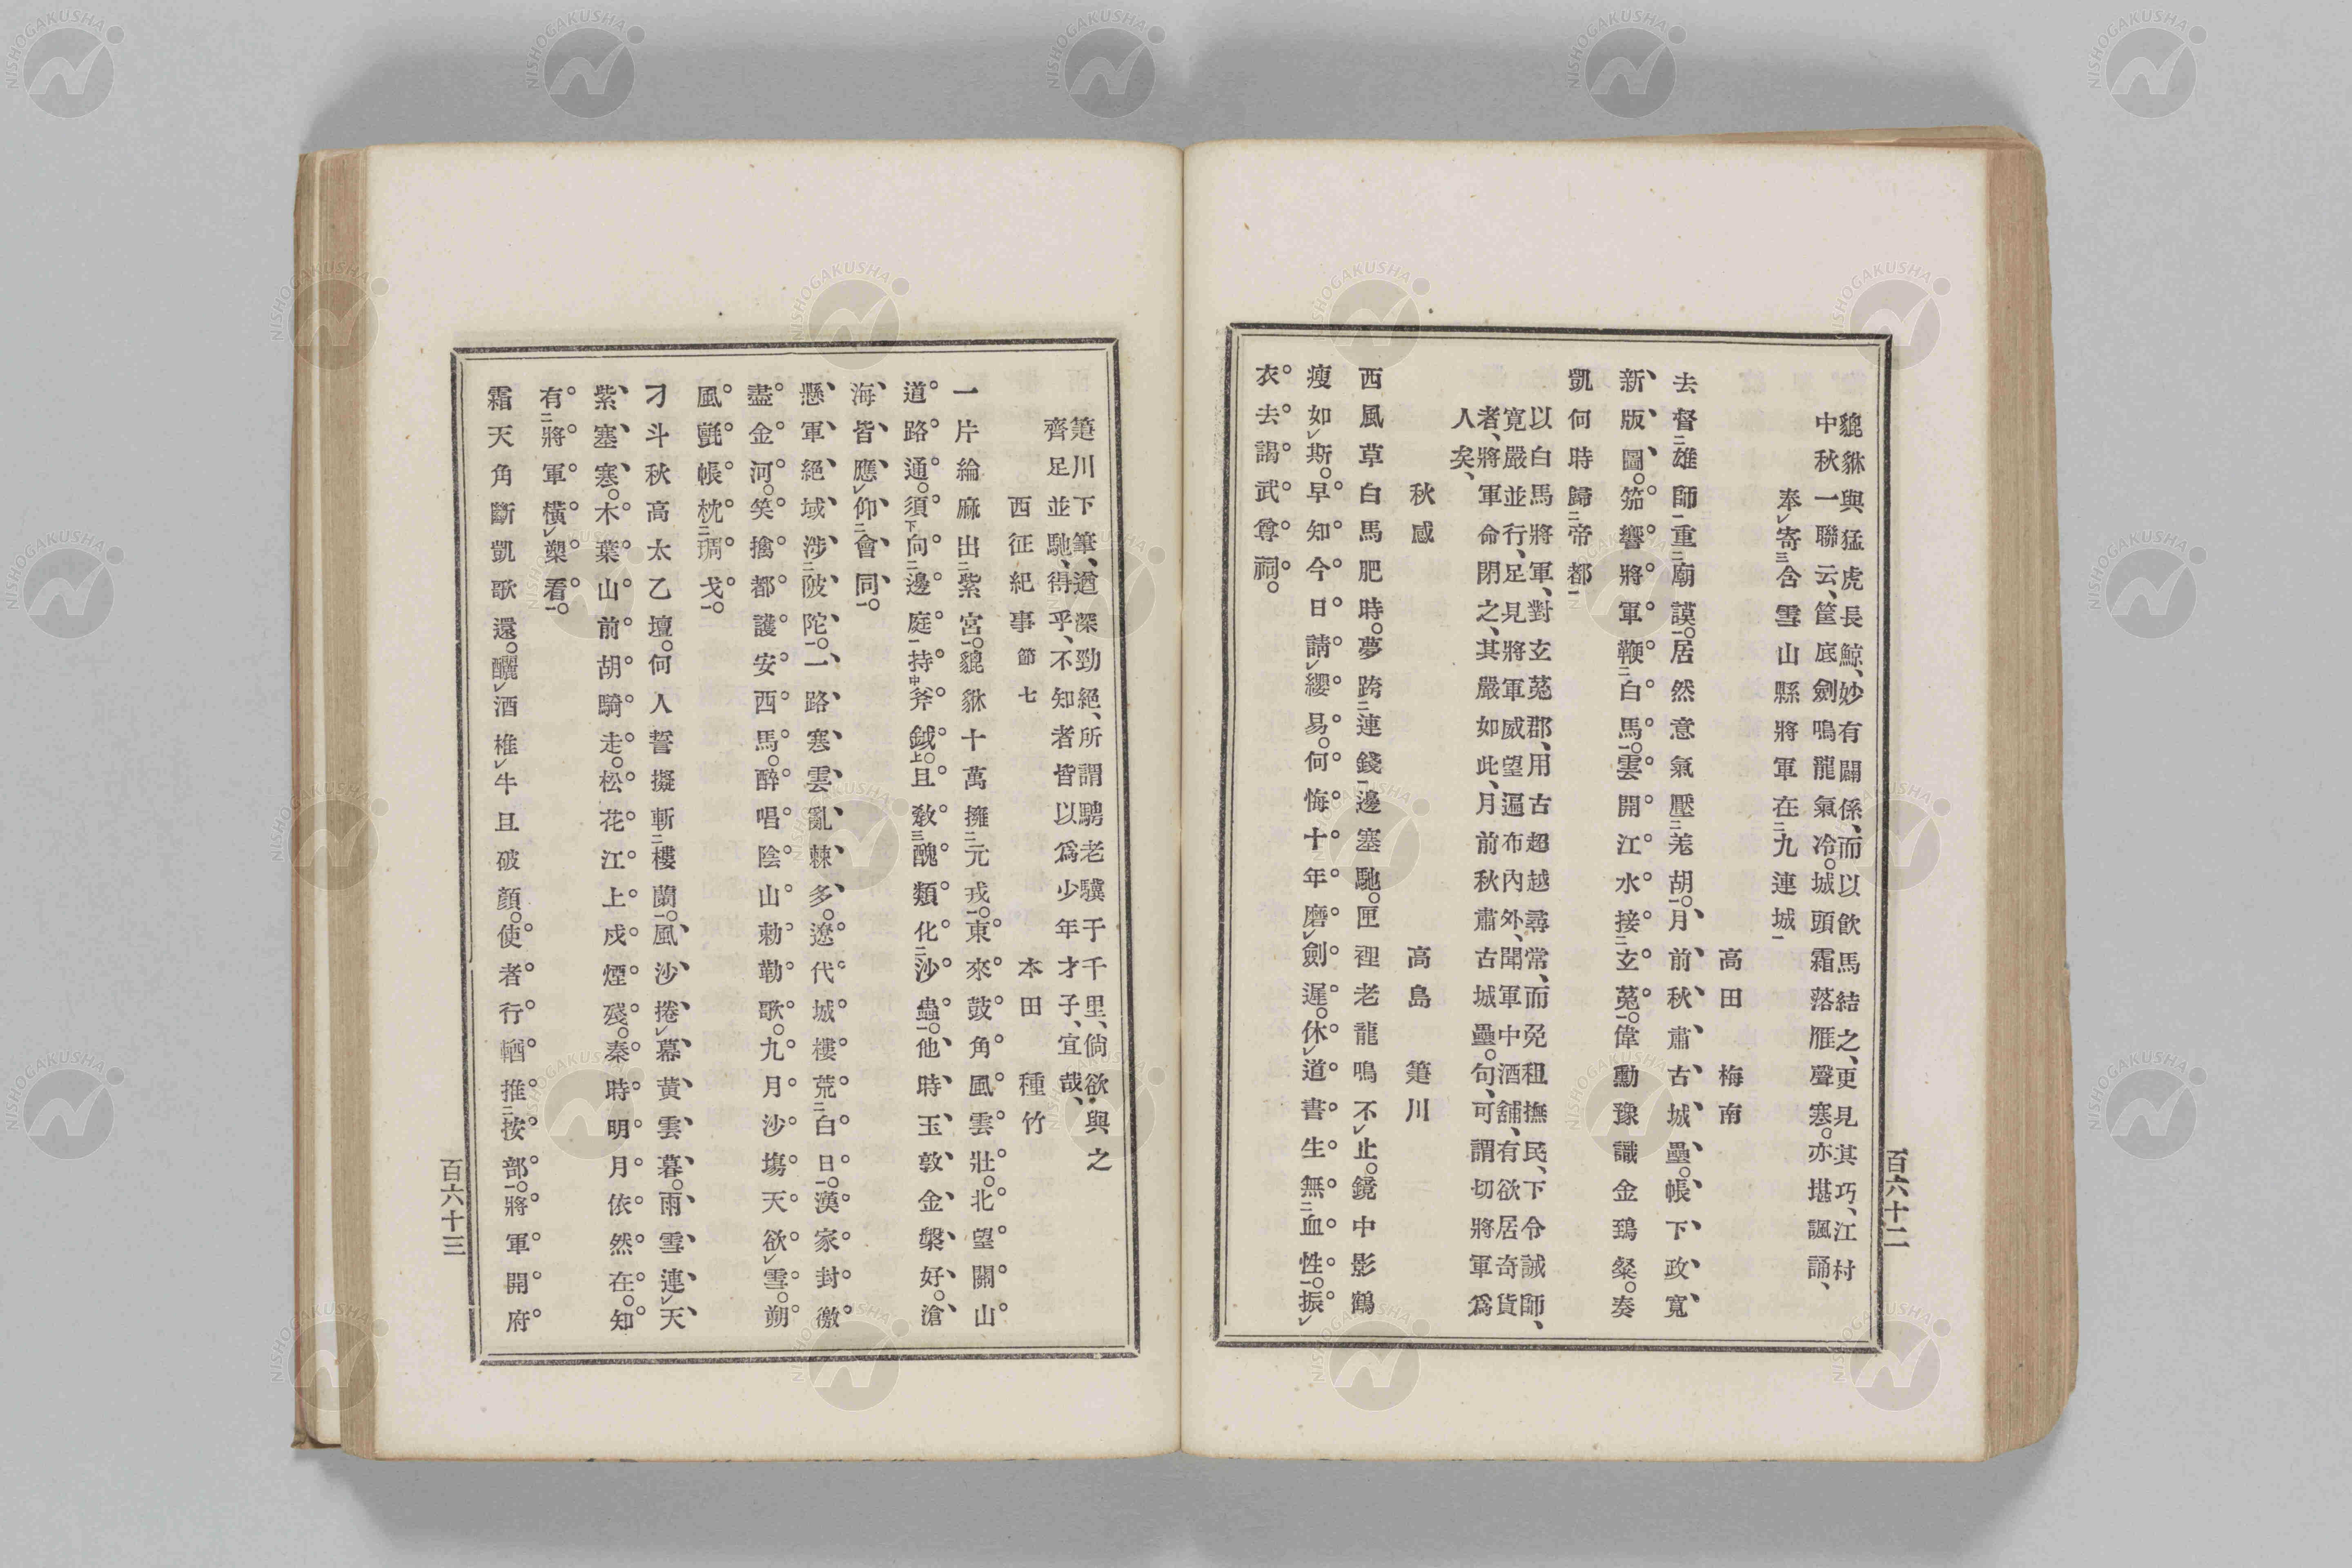 貔貅與猛虎長鯨、妙有關係、而以飮馬結之、更見其巧、江村
中秋一聯云、筐底劍鳴龍氣冷。城頭霜落雁聲塞。亦堪諷誦、
奉レ寄三含雪山縣將軍在二九連城一
高田梅南
去督二雄師一重二廟謨一。居然意氣壓二羗胡一。月前秋肅古城壘。帳下政寬
新版圖。笳響將軍鞭二白馬一。雲開江水接二玄菟一。偉勳豫識金鵄粲。奏
凱何時歸二帝都一
以白馬將軍、對玄菟郡、用古超越尋常、而免租撫民、下令誠師、
寬嚴並行、足見將軍威望遍布內外、聞軍中酒舖、有欲居奇貨
者、將軍命閉之、其嚴如此、月前秋肅古城壘。句、可謂切將軍爲
人矣、
秋感
高島篁川
西風草白馬肥時。夢跨二連錢一邊塞馳。匣裡老龍鳴不レ止。鏡中影鶴
瘦如レ斯。早知今日請レ纓易。何悔十年磨レ劍遲。休レ道書生無二血性一。振レ
衣去謁武尊祠。
百六十二
篁川下筆、遒深勁絕、所謂騁老驥于千里、倘欲與之
齊足並馳、得乎、不知者皆以爲少年才子、宜哉、
西征紀事 節七
本田種竹
一片綸麻出二紫宮一。貔貅十萬擁二元戎一。東來鼓角風雲壯。北望關山
道路通。須下向二邊庭一持中斧鉞上。且敎三醜類化二沙蟲一。他時玉敦金槃好。滄
海皆應レ仰二會同一。
懸軍絕域涉二陂陀一。一路塞雲亂棘多。遼代城樓荒二白日一。漢家封徼
盡金河。笑擒都護安西馬。醉唱陰山勅勒歌。九月沙塲天欲レ雪。朔
風氈帳枕二琱戈一。
刁斗秋高太乙壇。何人誓擬斬二樓蘭一。風沙捲レ幕黃雲暮。雨雪連レ天
紫塞塞。木葉山前胡騎走。松花江上戍煙殘。秦時明月依然在。知
有二將軍橫レ槊看一。
霜天角斷凱歌還。釃レ酒椎レ牛且破顏。使者行輶推二按部一。將軍開府
百六十三